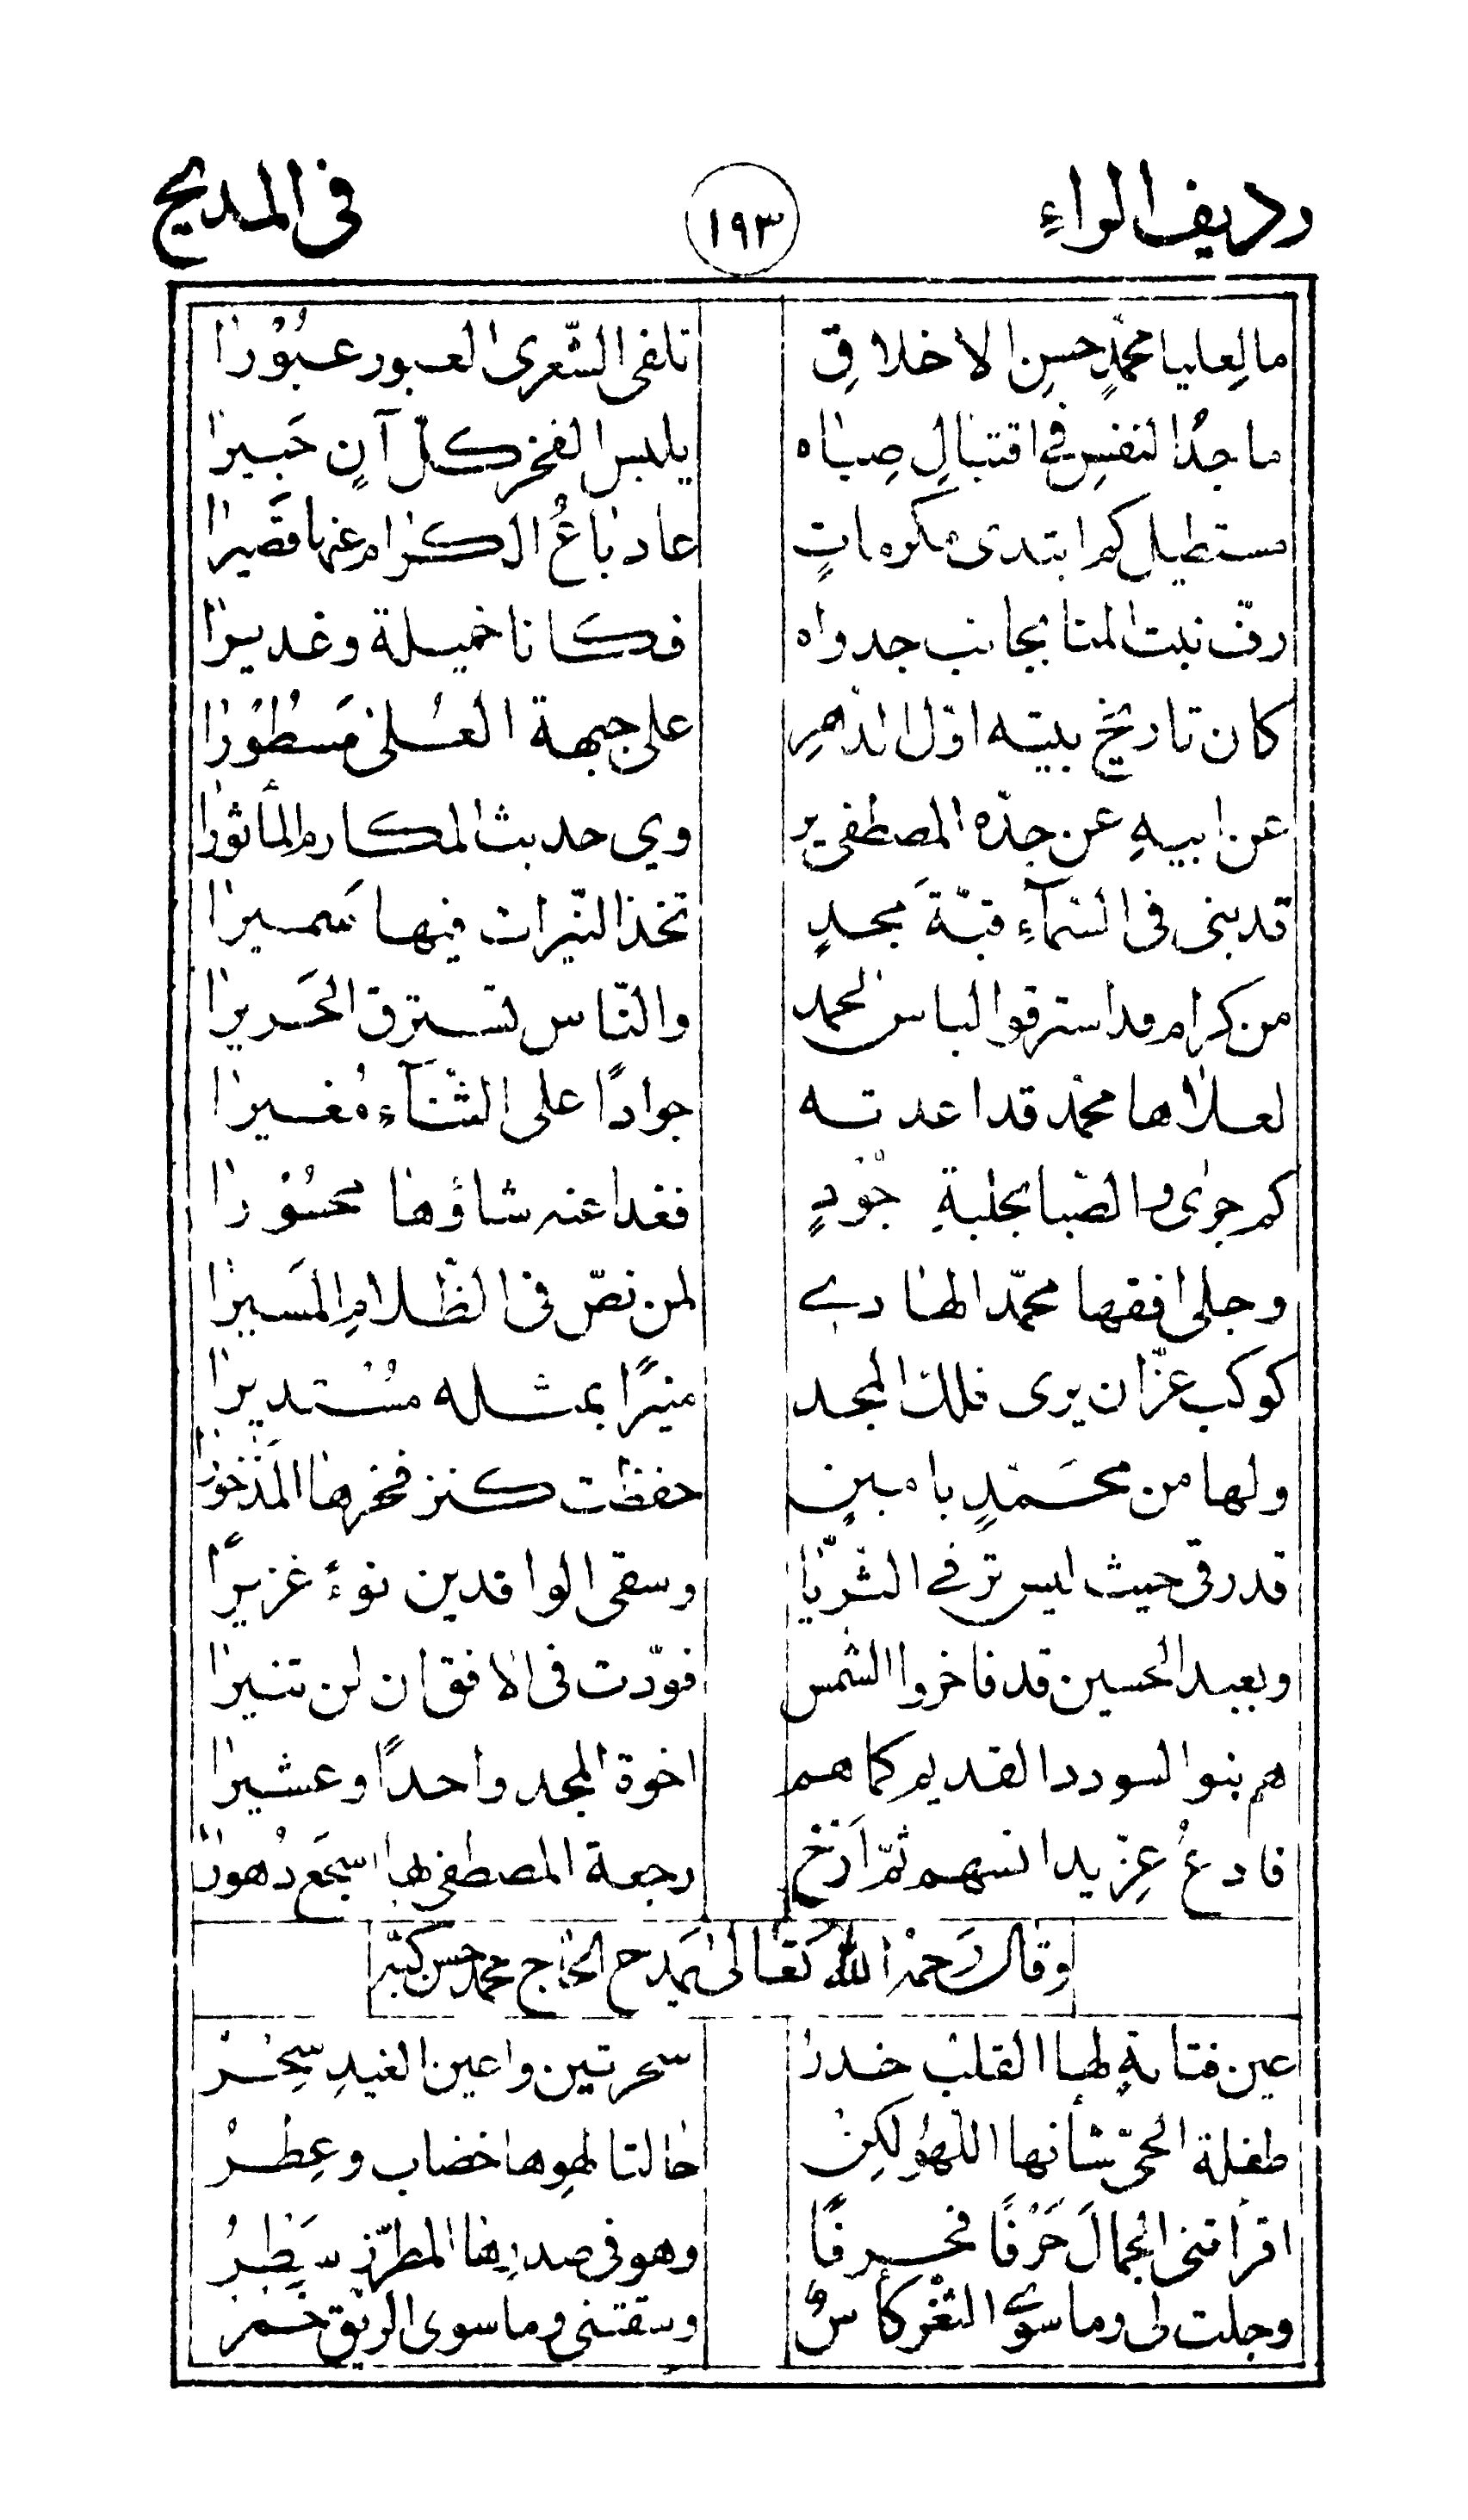 رديف الراء ١٩٣ في المديح
ما لِعليا محمّدٍ حسنِ الاخلاقِ تلفى الشّعرى العبور عبُوْرا
ماجدُ النفسِ في اقتبالِ صِباه يلبس الفخر كل آنٍ حَبيرا
مستطيل كم ابتدى مكرماتٍ عاد باعُ الكرام عنها قصَيرا
رفّ نبت المنا بجانب جدواه فكانا خميلة وغديرا
كان تاريخ بيته اوّل الدّهرِ على جبهة العُلى مَسطُوُرا
عن ابيهِ عن جدّه المصطفى ير وي حديث المكارم المأثورا
قد بنى في السّمآءِ قبّةَ مجدٍ تخذ النّيرات فيها سَميرا
من كرام قد استرقوا لباس الحمد والنّاس تسترق الحَريرا
لعلاها محمّد قد اعدته جوادًا على الثّنآء مُغيرا
كم جرى والصّبا بحلبةِ جُوْدٍ فغدا عنه شاؤها محسُوْرا
وجلى افقها محمّد الهادي لمن نصّ في الظّلامِ المَسيرا
كوكب عزّ ان يرى فلك المجد منيرًا بمثله مسُتديرا
ولها من محَمّدٍ بامينٍ حفظت كنز فخرها المَذخوُرا
قد رقى حيث ليس ترقى الثّريّا وسقى الوافدين نوءً غزيرًا
وبعبد الحسين قد فاخروا الشّمس فودّت في الافق ان لن تنيرا
هم بنوا السودد القديم كما هم اخوة المجد واحدًا وعشيرا
فادعُ عِزيدا نسهم ثمّ اَرّخ رجعة المصطفى بها اسجَع دُهورا
وقال رَحمهُ اللهُ تعَالىٰ يَمدح الحٰاج محمد حسن كبّه
عين فتانةٍ لها القلب خدرا سحرتين واعين الغيدِ سِحْرُ
طفلة الحيّ شأنها اللّهوُ لكِن حالتا لهوِها خضاب وعِطْرُ
اقرأتني الجمالَ حَرْفًا فحرفًا وهو في صدرِها المطرّز سَطْرُ
وجلت لي وما سوى الثغْر كأسٌ وسقتني وما سوى الرّيق خمر